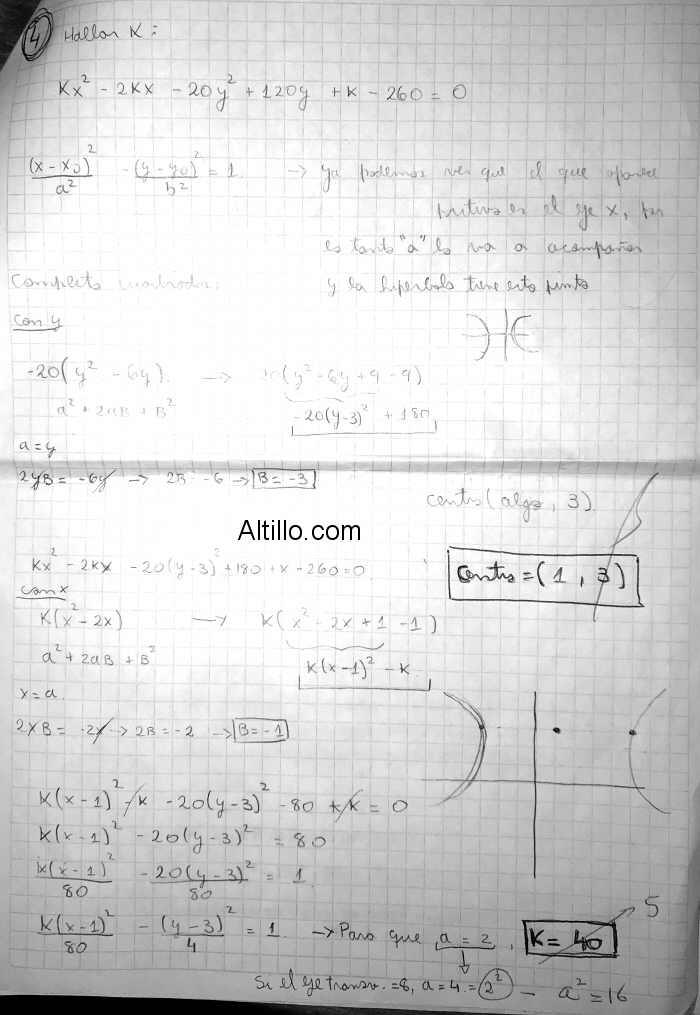 4 Hallar K:
Kx² - 2Kx - 20y² + 120y + K - 260 = 0
(x - x0)²/a² - (y - y0)²/b² = 1 → ya podemos ver que el que aparece
positivo es el eje x, por
es tanto "a" lo va a acompañar
Completo cuadrados: y la hiperbola tiene esta pinta
Con y
-20(y² - 6y) → (y² - 6y + 9 - 9)
a² + 2aB + B² -20(y-3)² + 180
a = y
2yB = -6y → 2B = -6 → B = -3
centro (algo, 3)
Altillo.com
Kx² - 2Kx - 20(y-3)² + 180 + K - 260 = 0
Centro = (1, 3)
con x
K(x² - 2x) → K(x² - 2x + 1 - 1)
a² + 2aB + B² K(x-1)² - K
x = a
2xB = -2x → 2B = -2 → B = -1
K(x-1)² - K - 20(y-3)² - 80 + K = 0
K(x-1)² - 20(y-3)² = 80
K(x-1)²/80 - 20(y-3)²/80 = 1
K(x-1)²/80 - (y-3)²/4 = 1 → Para que a = 2, K = 40 5
Si el eje transv. = 8, a = 4 = 2² - a² = 16